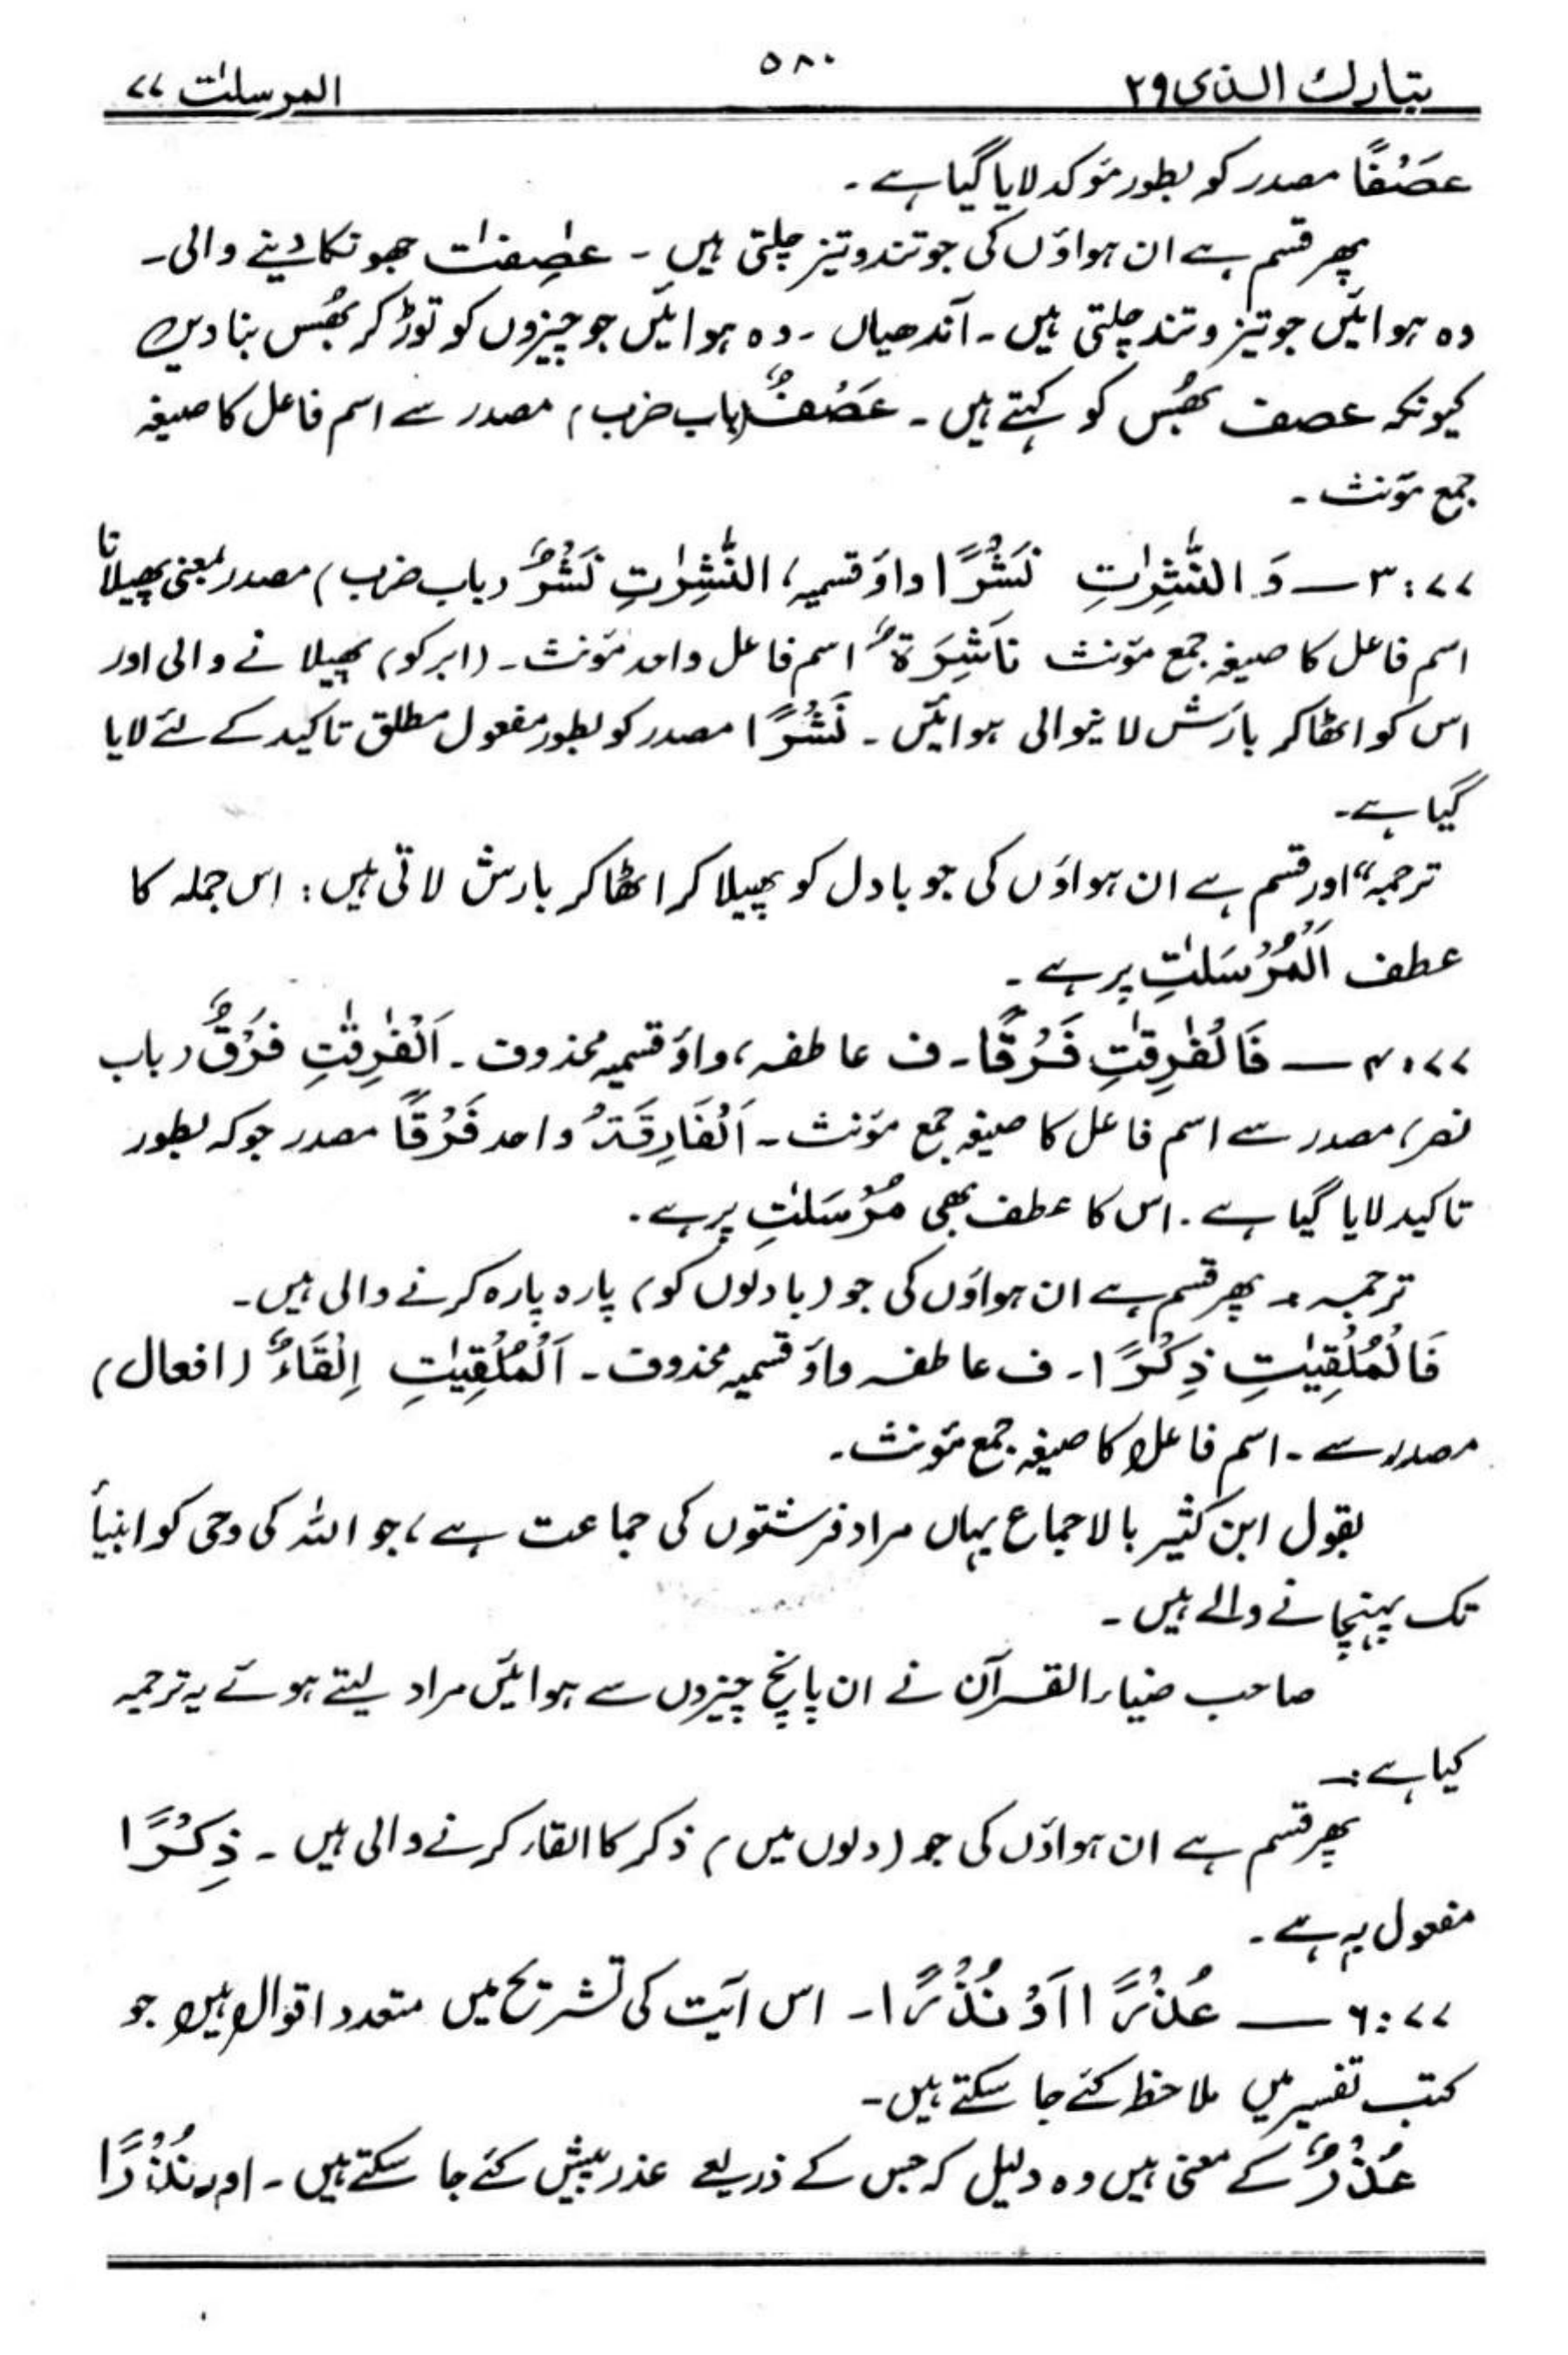 تبارك الذی ۲۹ ۵۸۰ المرسلٰت ۷۷
عَصْفًا مصدر کو بطور مؤکد لایا گیا ہے۔
پھر قسم ہے ان ہواؤں کی جو تند و تیز چلتی ہیں ۔ عٰصِفٰت جھونکا دینے والی۔
وہ ہوائیں جو تیز و تند چلتی ہیں ۔ آندھیاں ۔ وہ ہوائیں جو چیزوں کو توڑ کر بھُس بنا دیں
کیونکہ عصف بھُس کو کہتے ہیں ۔ عَصْفٌ (باب ضرب) مصدر سے اسم فاعل کا صیغہ
جمع مؤنث ۔
۷۷:۳ — وَ النّٰشِرٰتِ نَشْرًا واؤ قسمیہ، النّٰشِرٰتِ نَشْرٌ (باب ضرب) مصدر بمعنی پھیلانا
اسم فاعل کا صیغہ جمع مؤنث نَاشِرَةٌ اسم فاعل واحد مؤنث ۔ (ابر کو) پھیلانے والی اور
اس کو اٹھا کر بارش لانیوالی ہوائیں ۔ نَشْرًا مصدر کو بطور مفعول مطلق تاکید کے لئے لایا
گیا ہے۔
ترجمہ ”اور قسم ہے ان ہواؤں کی جو بادل کو پھیلا کر اٹھا کر بارش لاتی ہیں : اس جملہ کا
عطف اَلْمُرْسَلٰتِ پر ہے ۔
۷۷:۴ — فَالْفٰرِقٰتِ فَرْقًا۔ ف عاطفہ، واؤ قسمیہ محذوف ۔ اَلْفٰرِقٰتِ فَرْقٌ (باب
نصر) مصدر سے اسم فاعل کا صیغہ جمع مؤنث ۔ اَلْفَارِقَةُ واحد فَرْقًا مصدر جو کہ بطور
تاکید لایا گیا ہے ۔ اس کا عطف بھی مُرْسَلٰتِ پر ہے ۔
ترجمہ :۔ پھر قسم ہے ان ہواؤں کی جو (بادلوں کو) پارہ پارہ کرنے والی ہیں ۔
فَالْمُلْقِیٰتِ ذِكْرًا ۔ ف عاطفہ واؤ قسمیہ محذوف ۔ اَلْمُلْقِیٰتِ اِلْقَاءٌ (افعال)
مصدر سے ۔ اسم فاعل کا صیغہ جمع مؤنث ۔
بقول ابن کثیر بالاجماع یہاں مراد فرشتوں کی جماعت ہے، جو اللہ کی وحی کو انبیاء
تک پہنچانے والے ہیں ۔
صاحب ضیاء القرآن نے ان پانچ چیزوں سے ہوائیں مراد لیتے ہوئے یہ ترجمہ
کیا ہے :۔
پھر قسم ہے ان ہواؤں کی جو (دلوں میں) ذکر کا القاء کرنے والی ہیں ۔ ذِكْرًا
مفعول بہ ہے ۔
۷۷:۶ — عُذْرًا اَوْ نُذْرًا ۔ اس آیت کی تشریح میں متعدد اقوال ہیں جو
کتب تفسیر میں ملاحظہ کئے جا سکتے ہیں ۔
عُذْرٌ کے معنی ہیں وہ دلیل کہ جس کے ذریعے عذر پیش کئے جا سکتے ہیں ۔ اور نُذْرًا